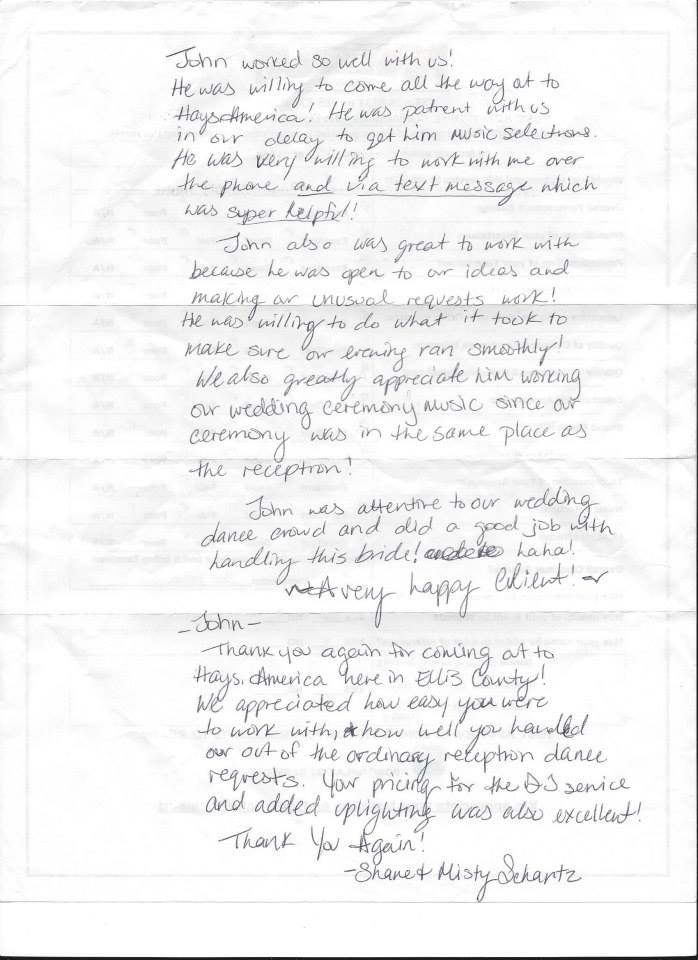 John worked so well with us!
He was willing to come all the way out to
Hays, America! He was patient with us
in our delay to get him music selections.
He was very willing to work with me over
the phone and via text message which
was super helpful!
John also was great to work with
because he was open to our ideas and
making our unusual requests work!
He was willing to do what it took to
make sure our evening ran smoothly!
We also greatly appreciate him working
our wedding ceremony music since our
ceremony was in the same place as
the reception!
John was attentive to our wedding
dance crowd and did a good job with
handling this bride! haha!
~A very happy Client!~
-John-
Thank you again for coming out to
Hays, America here in Ellis County!
We appreciated how easy you were
to work with, & how well you handled
our out of the ordinary reception dance
requests. Your pricing for the DJ service
and added uplighting was also excellent!
Thank You Again!
-Shane & Misty Schartz